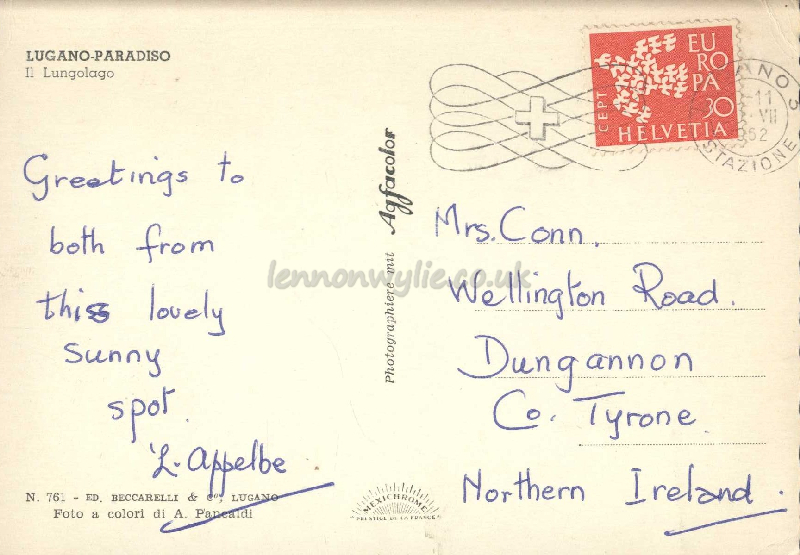 LUGANO-PARADISO
Il Lungolago
Greetings to
both from
this lovely
sunny
spot.
L. Appelbe
N. 761 - ED. BECCARELLI & Co, LUGANO
Foto a colori di A. Pancaldi
Photographiere mit Agfacolor
MEXICHROME
PRESTIGE DE LA FRANCE
EUROPA
CEPT
30
HELVETIA
ANO 3
11
VII
52
STAZIONE
Mrs. Conn.
Wellington Road.
Dungannon
Co. Tyrone.
Northern Ireland.
lennonwylie.co.uk